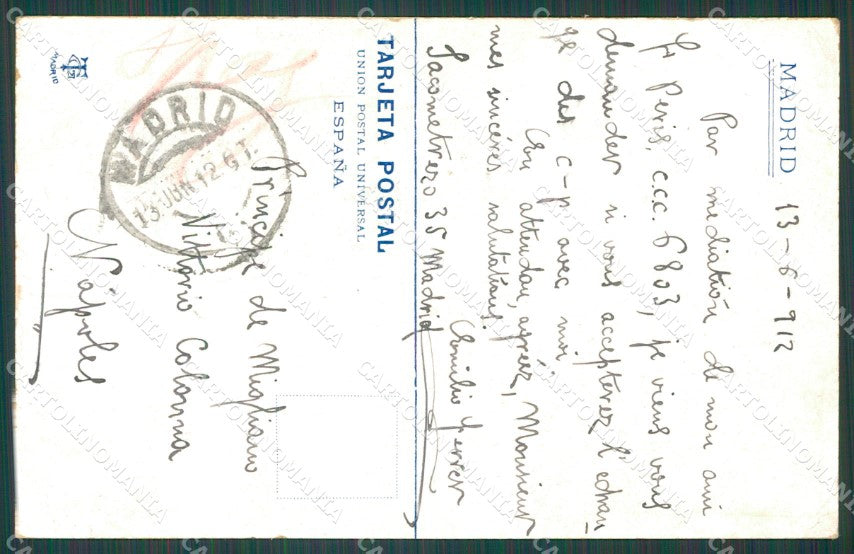 MADRID 13-6-912
Par mediation de mon ami
Peris, c.c.c. 6803, je viens vous
demander si vous accepterez l'echan-
ge des c-p avec moi.
En attendan, agréez, Monsieur
mes sincéres salutations.
Emilio Ferrer
Jacometrezo 35 Madrid
TARJETA POSTAL
UNION POSTAL UNIVERSAL
ESPAÑA
MADRID
13·JUN·12·6T·
Principe de Migliano
Vittorio Colonna
Nápoles
MADRID
CARTOLINOMANIA